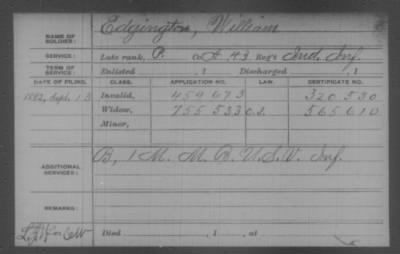 NAME OF SOLDIER: Edgington, William
SERVICE: Late rank, P. Co. A, 43 Reg't Ind. Inf.
TERM OF SERVICE: Enlisted , 1 Discharged , 1
DATE OF FILING. CLASS. APPLICATION NO. LAW. CERTIFICATE NO.
1882, Sept. 13 Invalid, 459673 320.530
Widow, 755533 565610
Minor,
ADDITIONAL SERVICES: B, 1 M. M. B. U.S.V. Inf.
REMARKS:
Died , 1 , at